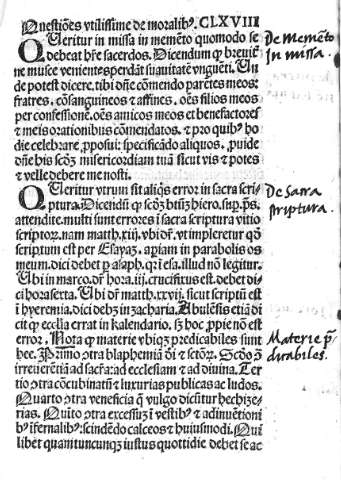 Questiões vtilissime de moralibꝰ. CLXVIII
QUeritur in missa in memẽto quomodo se
debeat hr̃e sacerdos. Dicendum ꝙ breuit̾
ne musce venientes perdãt suauitatẽ vngueti. Un
de potest dicere. tibi dñe cõmendo parẽtes meos:
fratres. cõsanguineos ⁊ affines. oẽs filios meos
per confessionẽ. oẽs amicos meos et benefactores
⁊ meis orationibus cõmendatos. ⁊ pro quibꝰ ho
die celebrare ꝓposui: specificãdo aliquos. ꝓuide
dñe his scḋꝫ misericordiam tuã sicut vis ⁊ potes
⁊ velle debere me nosti.
QUeritur vtrum sit aliqͥs error in sacra scri-
ptura. Dicendũ ꝙ scḋꝫ btũꝫ hiero. suꝑ. p̄s.
attendite. multi sunt errores ĩ sacra scriptura vitio
scriptoꝝ. nam matth. xiij. vbi dr̃. vt impleretur qḋ
scriptum est per Esayaꝫ. aꝑiam in parabolis os
meum. dici debet ꝑ asaph. qꝛ ĩ esa. illud nõ legitur.
Ubi in marco. dr̃ hora. iij. crucifixus est. debet di-
ci hora sexta. Ubi dr̃ matth. xxvij. sicut scriptũ est
ĩ hyeremia. dici debꝫ in zacharia. Abulẽsis etiã di
cit ꝙ ecclia errat in kalendario. sꝫ hoc ꝓpie nõ est
error. Nota ꝙ materie vbiqꝫ predicabiles sunt
hec. Primo ꝯtra blaphemiã dĩ ⁊ setõꝝ. Scḋo ꝯ̃
irreuerẽtiã ad sacr̃a: ad ecclesiam ⁊ ad diuina. Ter
tio ꝯtra cõcubinatũ ⁊ luxurias publicas ac ludos.
Quarto ꝯtra veneficia ꝙ vulgo dicũtur hechize-
rias. Quito ꝯtra excessuꝫ ĩ vestibꝰ ⁊ adinuẽtioni
bꝰ ĩfernalibꝰ: scindẽdo calceos ⁊ huiusmodi. Qui
libet quantuncunqꝫ iustus quottidie debet se ac
De Memẽto
in missa.
De Sacra
scriptura.
Materie p̄-
dicabiles.